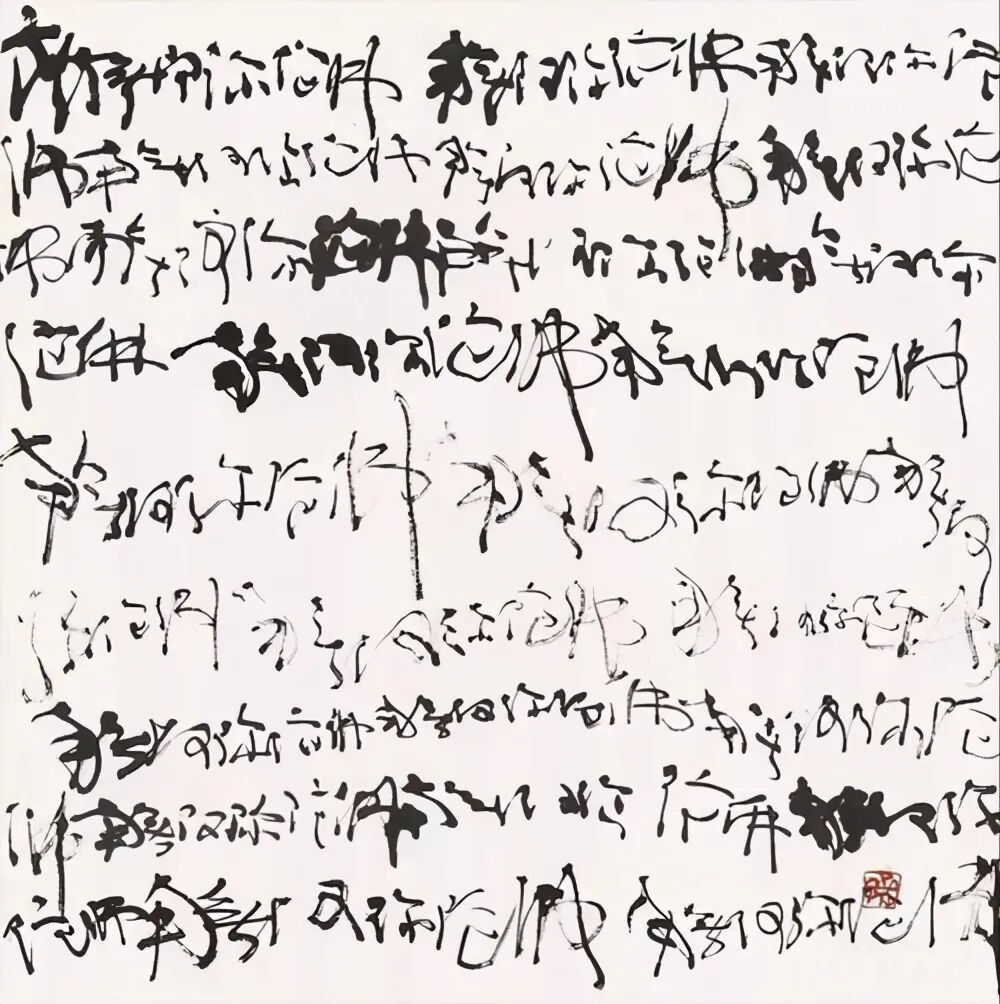 南無阿弥陀佛南無阿弥陀佛南無阿弥陀
佛南無阿弥陀佛南無阿弥陀佛南無阿弥陀
佛南無阿弥陀佛南無阿弥陀佛南無阿弥
陀佛南無阿弥陀佛南無阿弥陀佛
南無阿弥陀佛南無阿弥陀佛南無阿
弥陀佛南無阿弥陀佛南無阿弥陀佛
南無阿弥陀佛南無阿弥陀佛南無阿弥陀
佛南無阿弥陀佛南無阿弥陀佛南無阿弥
陀佛南無阿弥陀佛南無阿弥陀佛